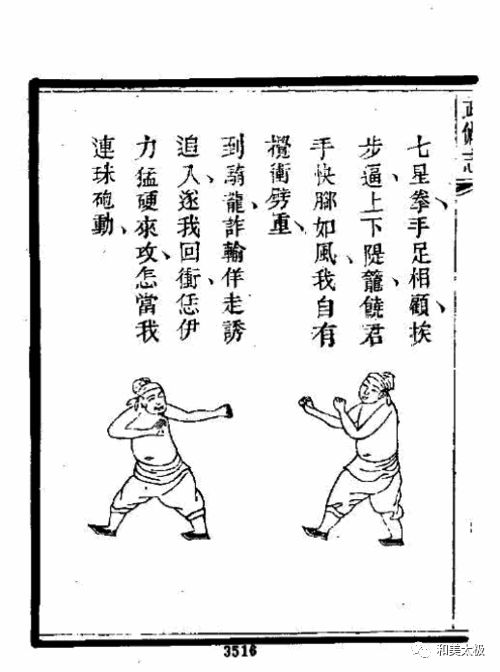 武備志
七星拳手足相顧挨
步逼上下隄籠饒君
手快腳如風我自有
攪衝劈重
到騎龍詐輸佯走誘
追入遂我回衝恁伊
力猛硬來攻怎當我
連珠砲動
3516
和美太极